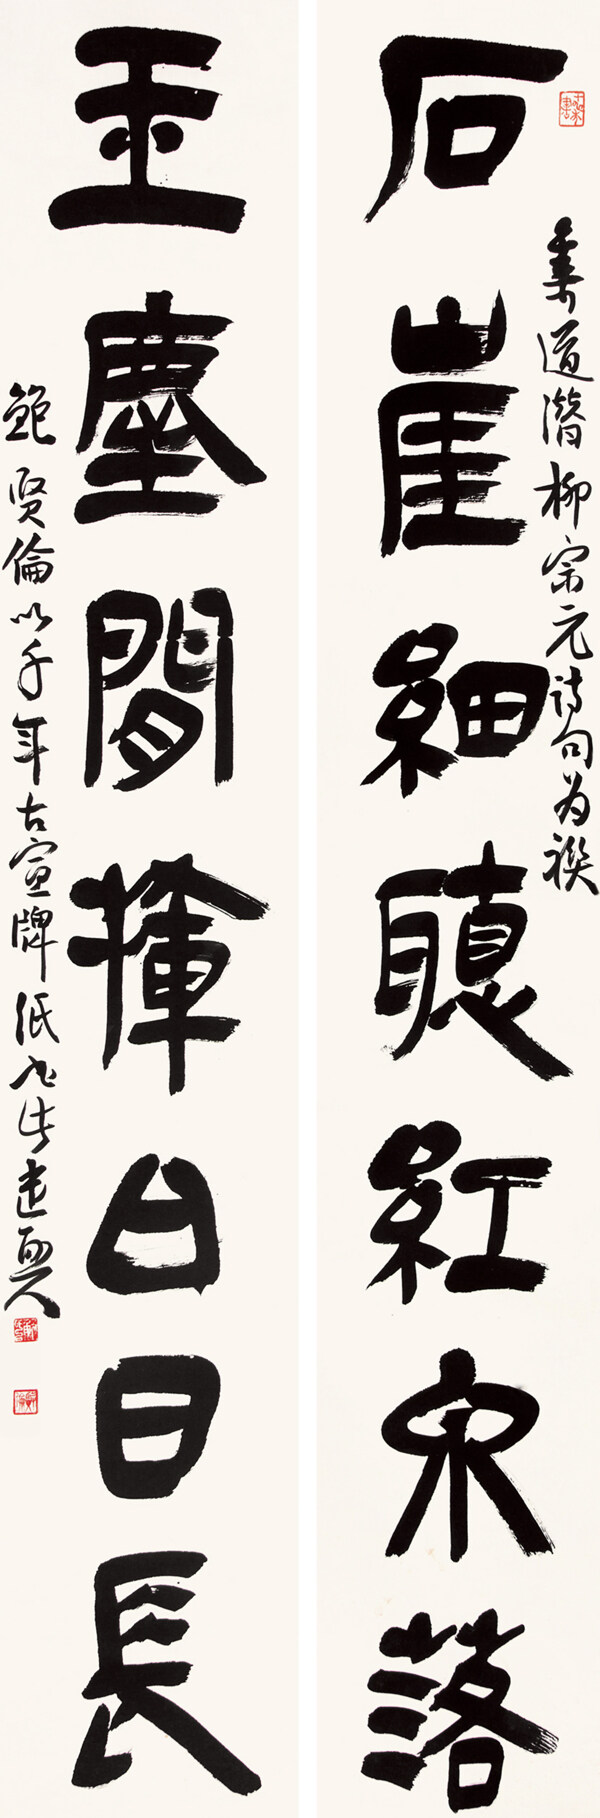 石崖細聽紅泉落
集道潛柳宗元詩句為
玉麈閒揮白日長
鮑賢倫以千年古宣牌紙作此遣興